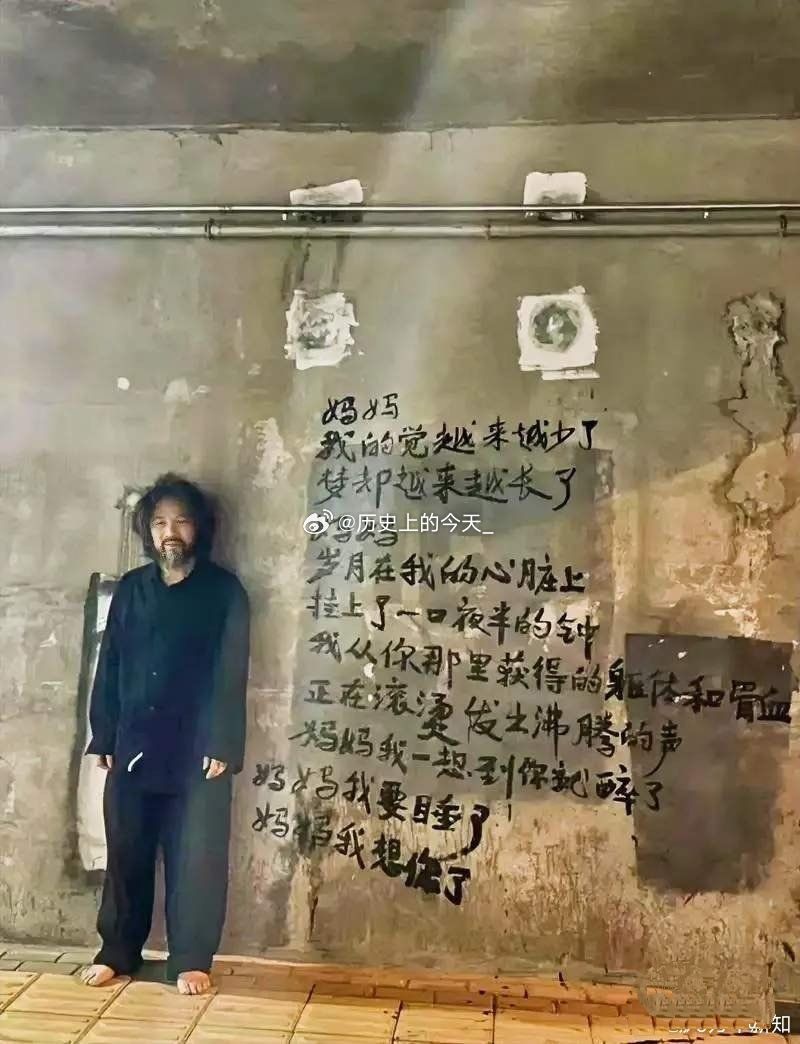 妈妈
我的觉越来越少了
梦却越来越长了
妈妈
岁月在我的心脏上
挂上了一口夜半的钟
我从你那里获得的躯体和骨血
正在滚烫发出沸腾的声
妈妈我一想到你就醉了
妈妈我要睡了
妈妈我想你了
@历史上的今天_
知